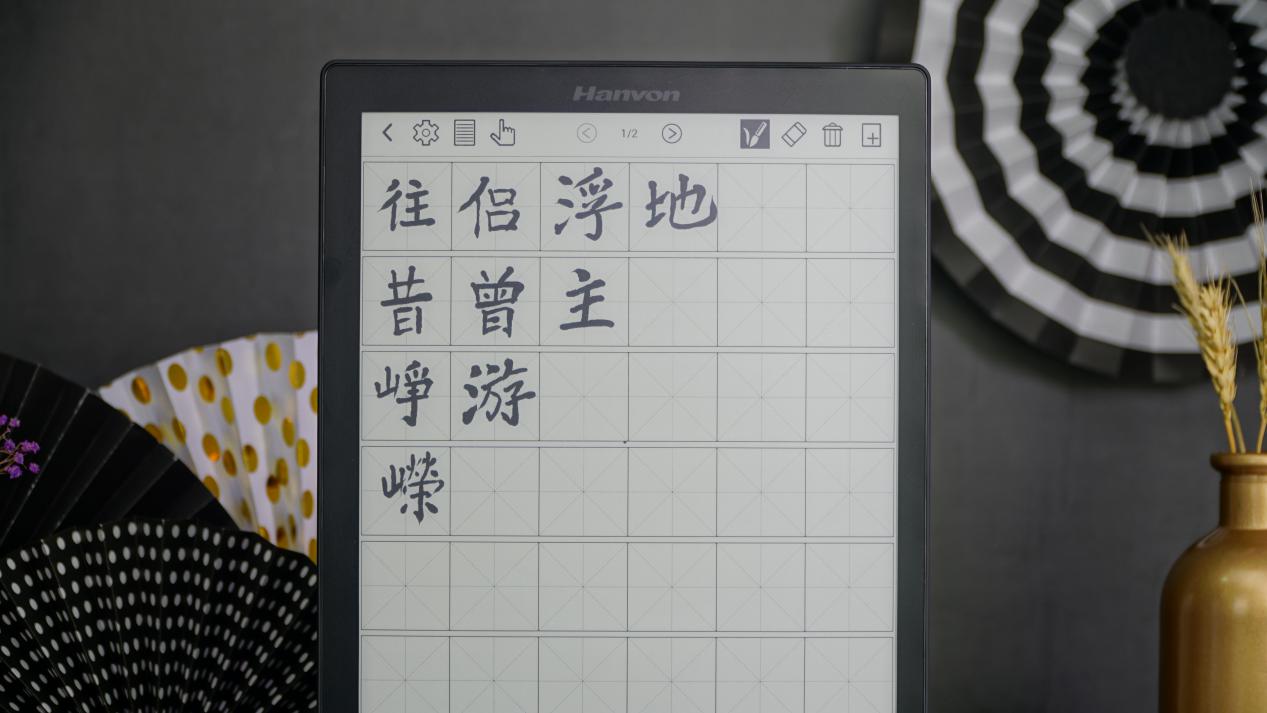 Hanvon
1/2
往侣浮地
昔曾主
崢游
嶸